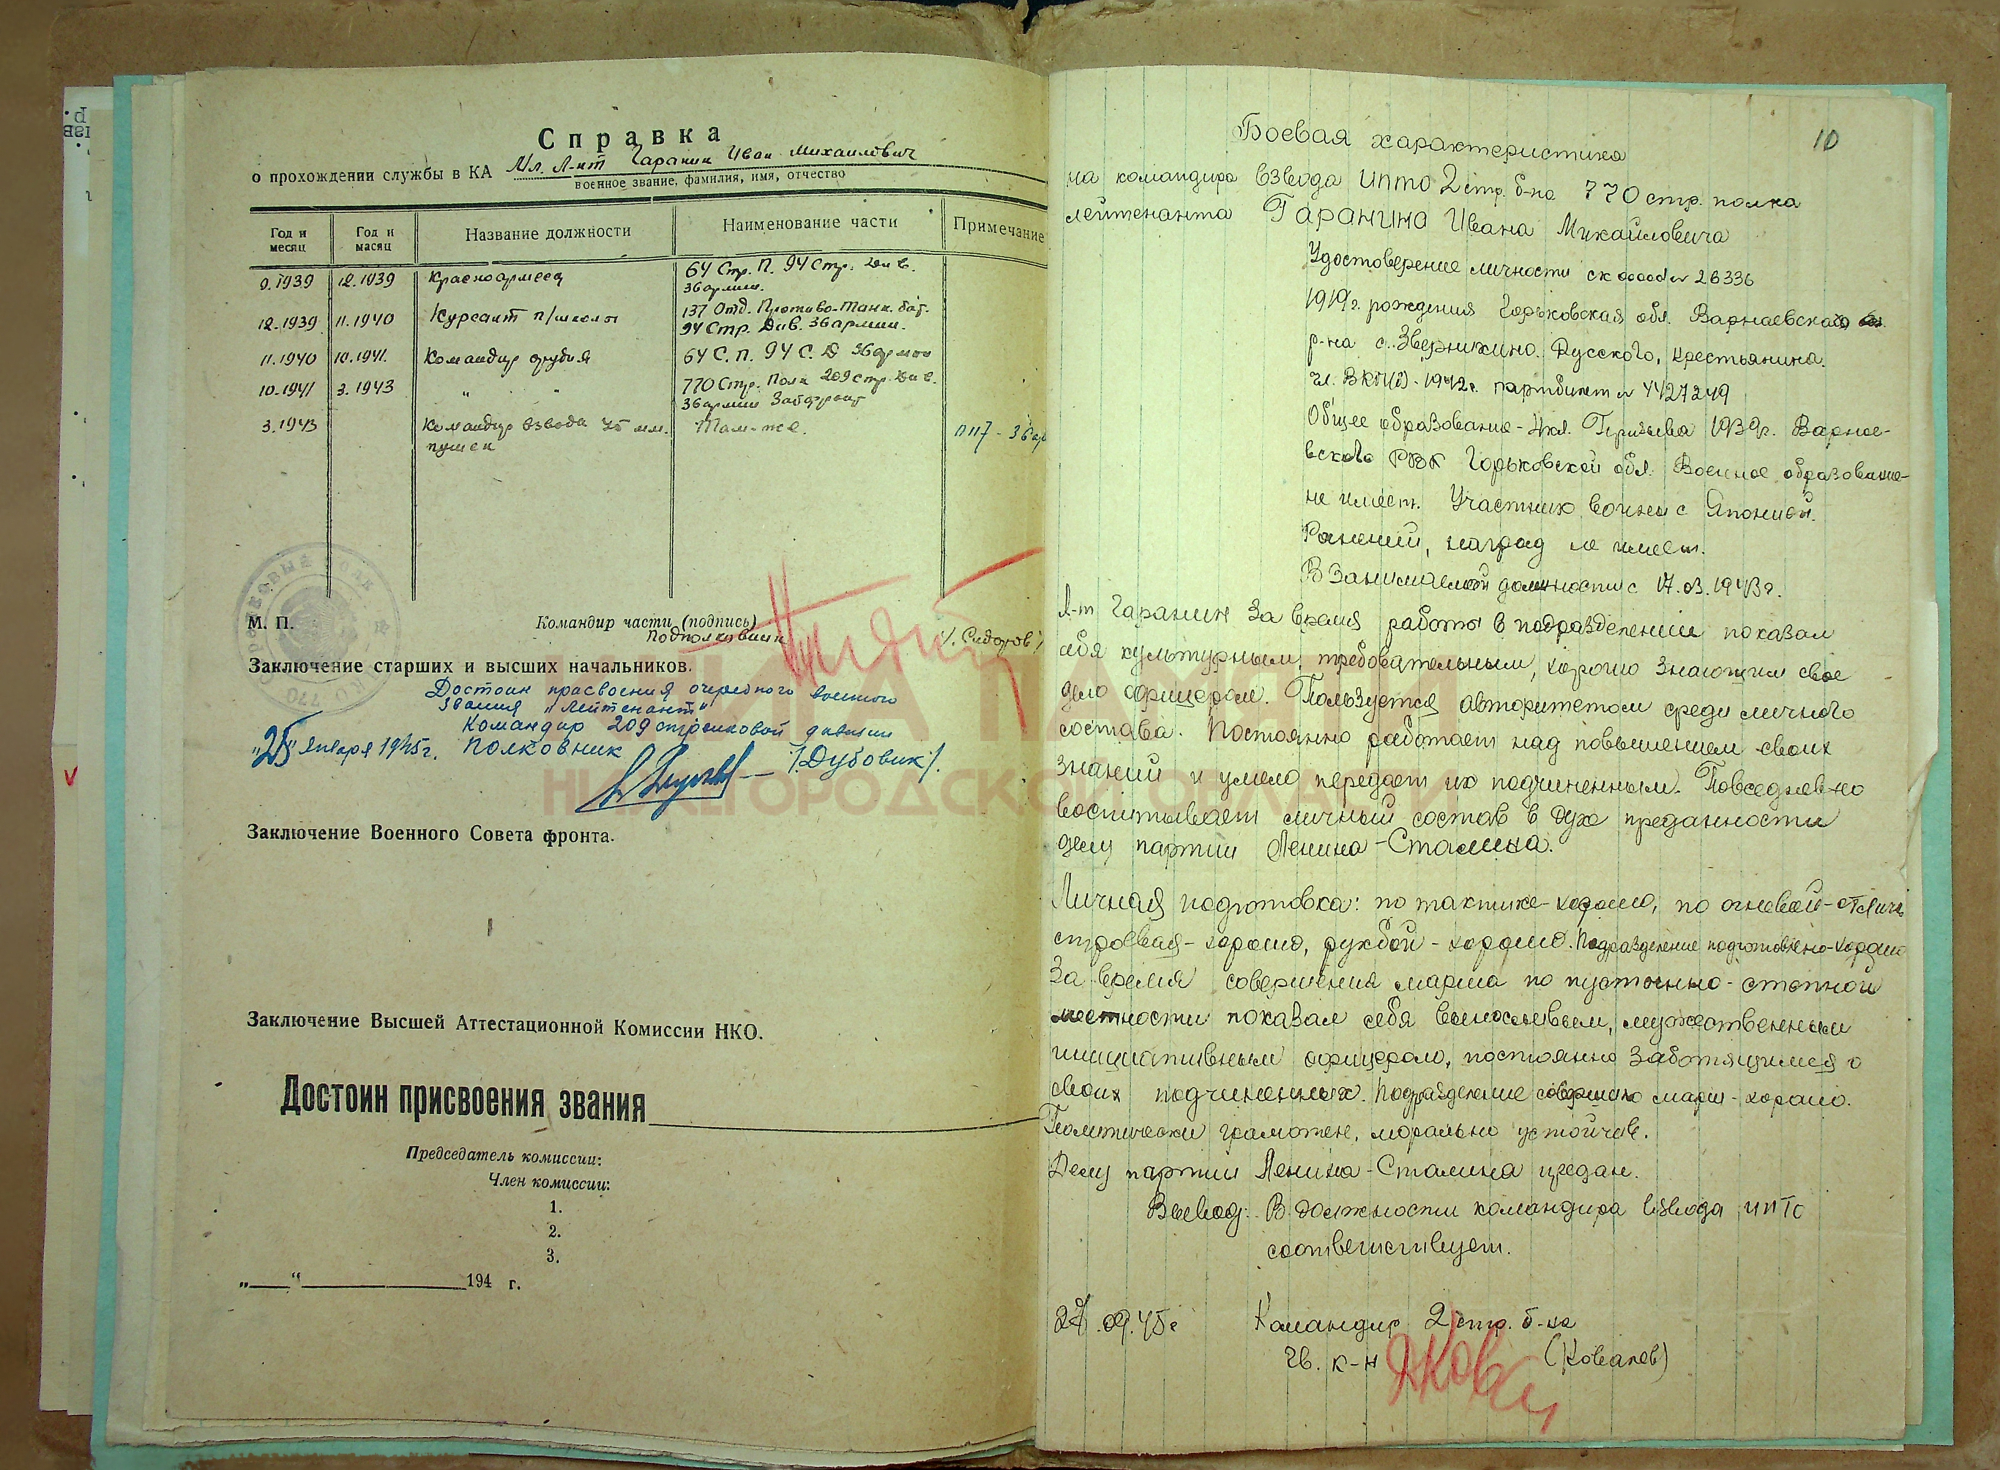 Справка
о прохождении службы в КА Мл. Л-нт Гаранин Иван Михайлович
военное звание, фамилия, имя, отчество
Год и месяц Год и масяц Название должности Наименование части Примечание
9.1939 12.1939 Красноармеец 64 Стр. П. 94 Стр. Див.
36 армии.
12.1939 11.1940 Курсант п/школы 137 Отд. Противо-Танк. бат.
94 Стр. Див. 36 армии.
11.1940 10.1941. Командир орудия 64 С.п. 94 С.Д 36 армии
10.1941 3.1943 " " 770 Стр. Полк 209 стр. Див.
36 армии Забфронт
3.1943 Командир взвода 45 мм. Там-же.
пушек
М. П. Командир части (подпись)
Подполковник /. Сидоров /
Заключение старших и высших начальников.
Достоин присвоения очередного военного
звания "Лейтенант"
Командир 209 стрелковой дивизии
"25" января 1945г. Полковник /. Дубовик/.
Заключение Военного Совета фронта.
Заключение Высшей Аттестационной Комиссии НКО.
Достоин присвоения звания
Председатель комиссии:
Член комиссии:
1.
2.
3.
„ “ 194 г.
10
Боевая характеристика
на командира взвода ипто 2 стр. б-на 770 стр. полка
лейтенанта Гаранина Ивана Михайловича
Удостоверение личности 26336
1919г. рождения Горьковская обл. Варнавского
р-на с. Зверникино. Русского, крестьянина.
чл. ВКП(б) - 1942г. партбилет № 4427249
Общее образование - 4кл. Призыва 1939г. Варна-
вского РВК Горьковской обл. Военное образование-
не имеет. Участник войны с Японией.
Ранений, наград не имеет.
В занимаемой должности с 17.03.1943г.
Л-т Гаранин за время работы в подразделении показал
себя культурным, требовательным, хорошо знающим свое
дело офицером. Пользуется авторитетом среди личного
состава. Постоянно работает над повышением своих
знаний и умело передает их подчиненным. Повседневно
воспитывает личный состав в духе преданности
делу партии Ленина-Сталина.
Личная подготовка: по тактике-хорошо, по огневой-отличн
строевая-хорошо, ружбой-хорошо. Подразделение подготовлено-хорошо
За время совершения марша по пустынно-степной
местности показал себя выносливым, мужественным
инициативным офицером, постоянно заботящимся о
своих подчиненных. Подразделение совершило марш-хорошо.
Политически грамотен, морально устойчив.
Делу партии Ленина-Сталина предан.
Вывод: В должности командира взвода ипто
соответствует.
.09.45г Командир 2 стр. б-на
Гв. к-н (Ковалев)
КНИГА ПАМЯТИ
НИЖЕГОРОДСКОЙ ОБЛАСТИ